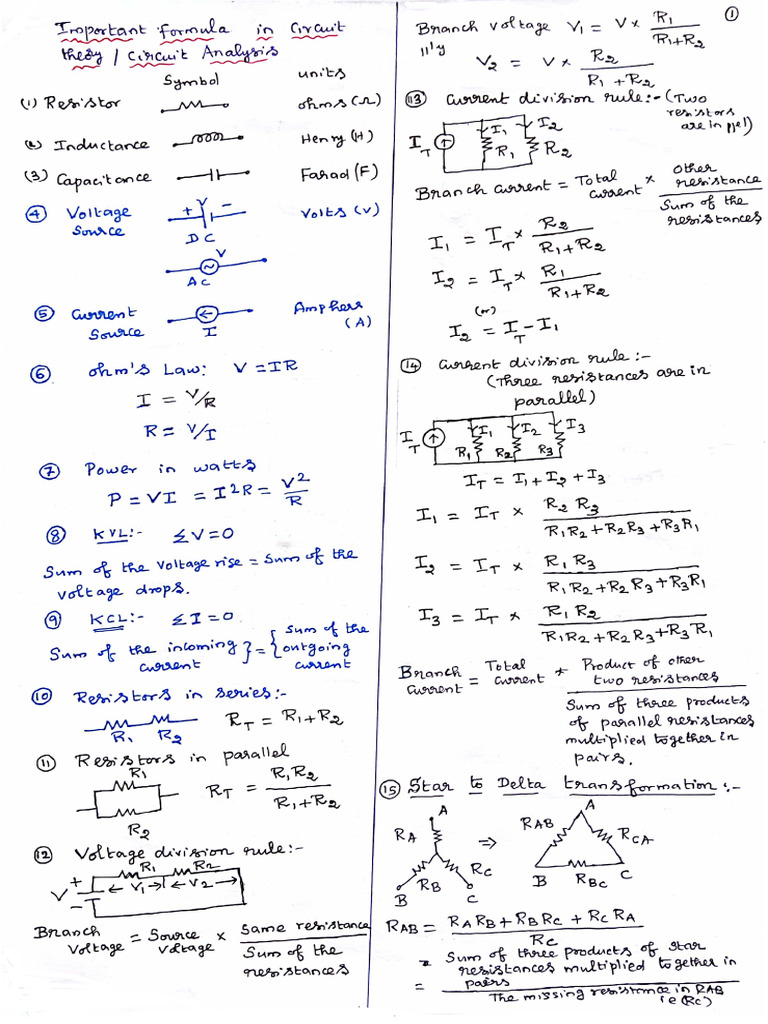 Important formula in Circuit
theory / Circuit Analysis
Symbol units
(1) Resistor ohms (Ω)
(2) Inductance Henry (H)
(3) Capacitance Farad (F)
(4) Voltage Source + V - DC Volts (V)
V
AC
(5) Current Source I Amphers (A)
(6) ohm's Law: V = IR
I = V/R
R = V/I
(7) Power in watts
P = VI = I²R = V²/R
(8) KVL:- ΣV=0
Sum of the voltage rise = Sum of the
voltage drops.
(9) KCL:- ΣI=0
Sum of the incoming current } = { Sum of the outgoing current
(10) Resistors in series:-
R1 R2 RT = R1+R2
(11) Resistors in parallel
R1
R2
RT = R1R2 / R1+R2
(12) Voltage division rule:-
R1 R2
V + - ←V1→ ←V2→
Branch Voltage = Source voltage × Same resistance / Sum of the resistances
(1)
Branch voltage V1 = V× R1 / R1+R2
lll'y
V2 = V× R2 / R1+R2
(13) Current division rule:- (Two resistors are in p/el)
IT I1 R1 I2 R2
Branch current = Total current × Other resistance / Sum of the resistances
I1 = IT × R2 / R1+R2
I2 = IT × R1 / R1+R2
(or)
I2 = IT - I1
(14) Current division rule:-
(Three resistances are in
parallel)
IT I1 I2 I3
R1 R2 R3
IT = I1+I2+I3
I1 = IT × R2 R3 / R1R2+R2R3+R3R1
I2 = IT × R1 R3 / R1R2+R2R3+R3R1
I3 = IT × R1R2 / R1R2+R2R3+R3R1
Branch current = Total current × Product of other two resistances / Sum of three products of parallel resistances multiplied together in pairs.
(15) Star to Delta transformation:-
A RA RB RC B C ⇒ A RAB RCA B RBC C
RAB = RARB+RBRC+RCRA / RC
= Sum of three products of star
resistances multiplied together in
= pairs / The missing resistance in RAB
i.e (RC)